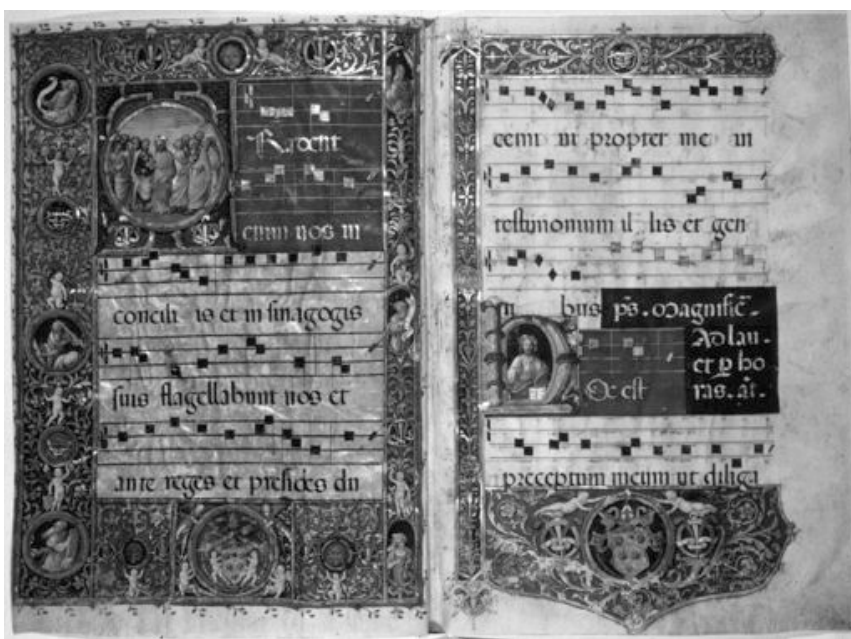 Tradent
enim vos in
concili is et in sinagogis
suis flagellabunt vos et
ante reges et presides du
cemi ni propter me in
testimonium il lis et gen
ti bus ps. Magnific̄.
Ad lau-
et ꝑ ho
ras. añ.
Hoc est
preceptum meum ut diliga